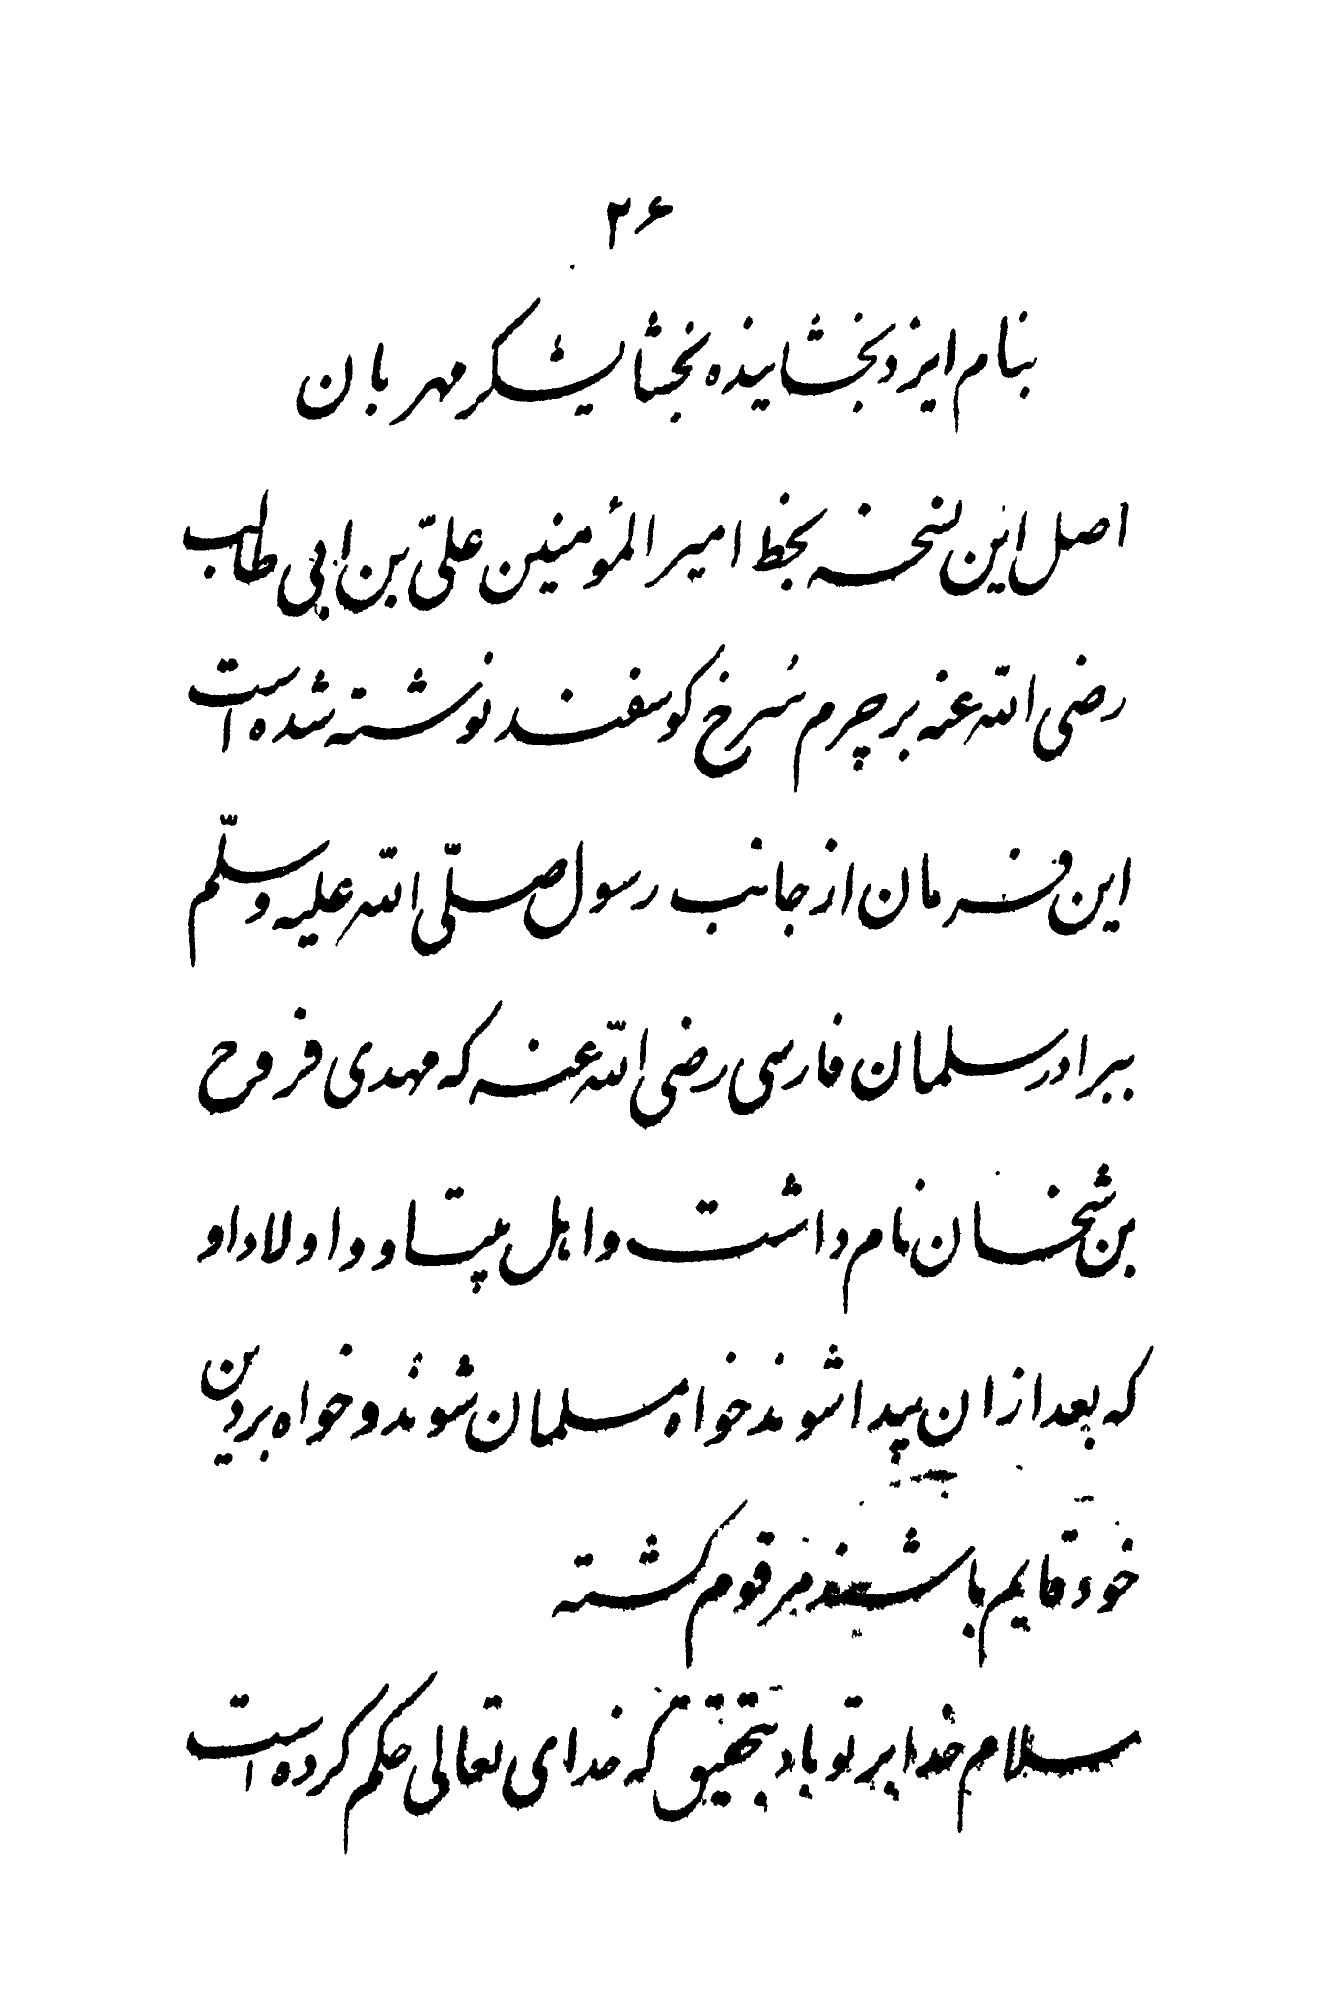 ۲۶
بنام ایزد بخشاینده بخشایشگر مهربان
اصل این نسخه بخط امیر المؤمنین علیّ بن ابی طالب
رضی اللّه عنه بر چرم سُرخ کوسفند نوشته شده است
این فرمان از جانب رسول صلّی اللّه علیه وسلّم
ببرادر سلمان فارسی رضی اللّه عنه که مهدی فروح
بن شخسان نام داشت و اهل بیتاو و اولاد او
که بعد ازان پیدا شوند خواه مسلمان شوند و خواه بردین
خود قایم باشند مر قوم کشته
سلام خدا بر تو باد بتحقیق که خدای تعالی حکم کرده است